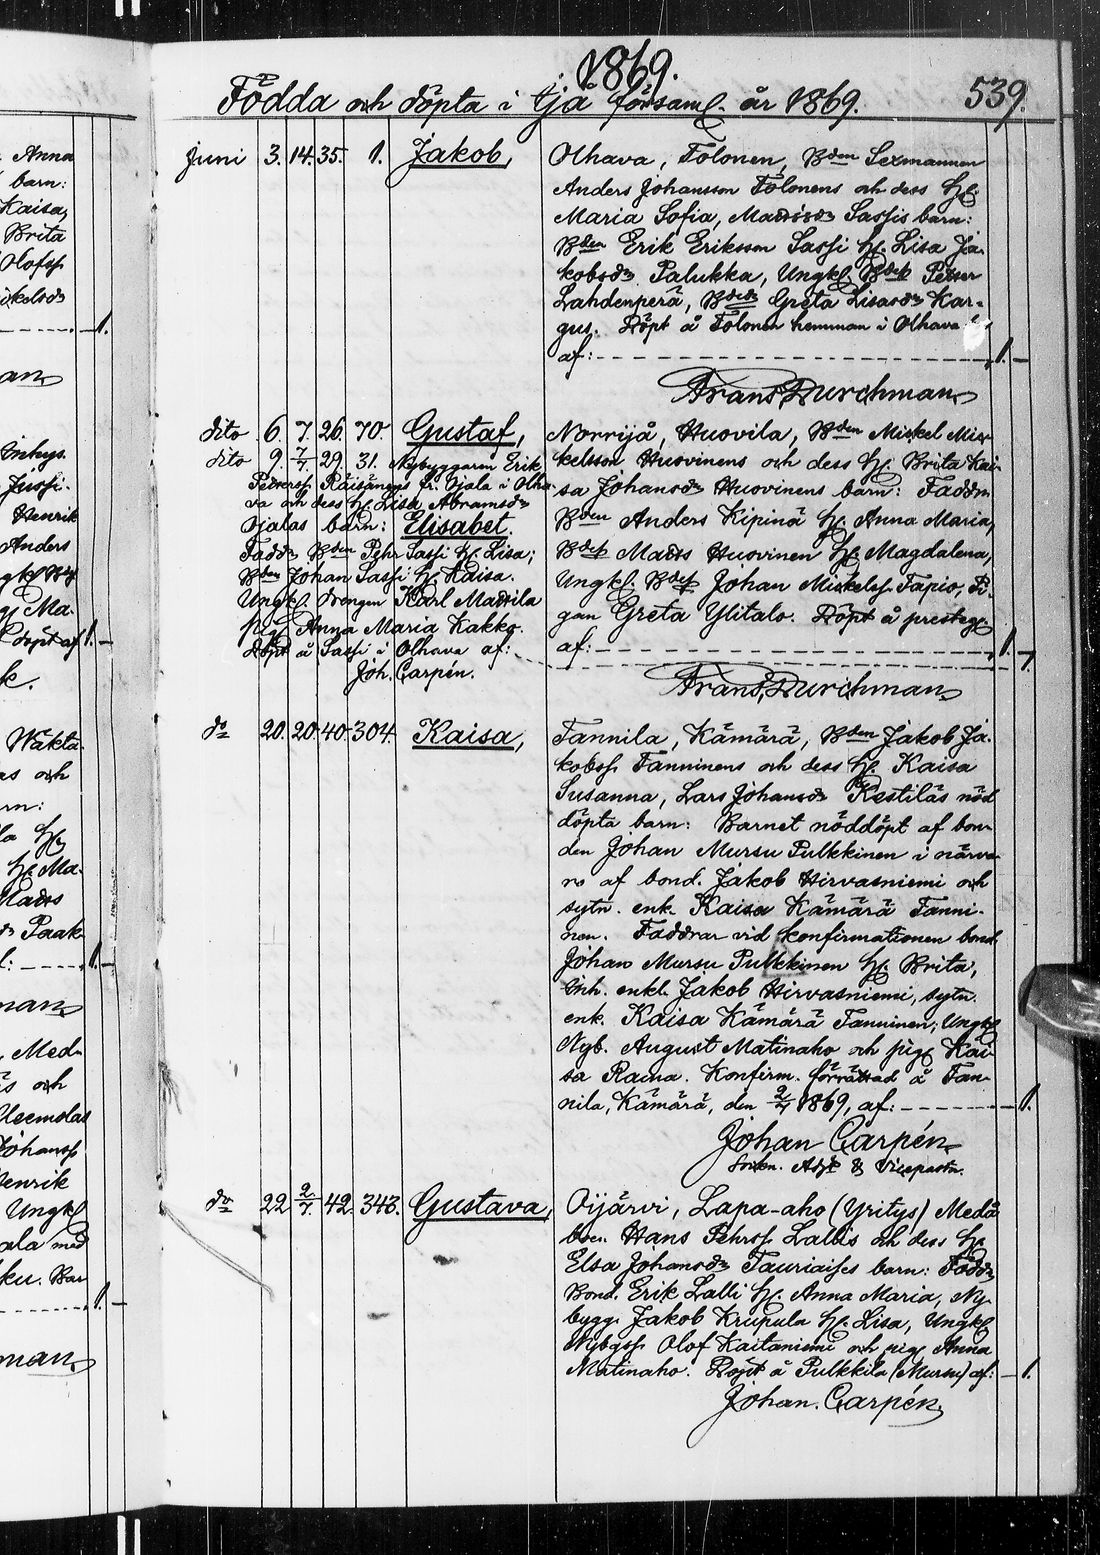 1869.
Födda och döpta i Ijå församl. år 1869.
539.
Juni 3. 14. 35. 1. Jakob,
Olhava, Tolonen, Bden Sexmannen
Anders Johansson Tolonens och dess H.
Maria Sofia, Mattsdr Sassis barn:
Bden Erik Eriksson Sassi H. Lisa Ja-
kobsdr Palukka, Ungkl. Bdes Petter
Lahdenperä, Bdedr Greta Lisa Kar-
gus. Döpt å Tolonen hemman i Olhava
af: 1. –
Frans Durchman
dito 6. 7. 26. 70. Gustaf,
Norrijå, Huovila, Bden Mickel Mic-
kelsson Huovinens och dess H. Brita Kai-
sa Johansdr Huovinens barn: Faddr
Bden Anders Kipinä H. Anna Maria,
Bdes Matts Huovinen H. Magdalena,
Ungkl. Bdes Johan Mickels. Tapio, Pi-
gan Greta Ylitalo. Döpt å presteg.
af: 1.
Frans Durchman
dito 9. 7/7. 29. 31. Nybyggaren Erik
Petterss. Räisänens fr. Ojala i Olha-
va och dess H. Lisa Abramsdr
Ojalas barn: Elisabet.
Faddr Bden Pehr Sassi H. Lisa;
Bden Johan Sassi H. Kaisa.
Ungkl. drengen Karl Mattila
pig. Anna Maria Kakko.
Döpt å Sassi i Olhava af: 1
Joh. Carpén.
do 20. 20. 40. 304. Kaisa,
Tannila, Kämärä, Bden Jakob Ja-
kobss. Tanninens och dess H. Kaisa
Susanna, Lars Johansdr Kestiläs nöd
döpta barn: Barnet nöddöpt af bon-
den Johan Mursu Pulkkinen i närva-
ro af bond. Jakob Hirvasniemi och
sytn. enk. Kaisa Kämärä Tanni-
nen. Faddrar vid konfirmationen bond.
Johan Mursu Pulkkinen H. Brita,
Inh. enkl. Jakob Hirvasniemi, sytn.
enk. Kaisa Kämärä Tanninen; Ungkl
Nyb. August Matinaho och pig. Kai-
sa Raina. Konfirm. förrättad å Tan-
nila, Kämärä, den 2/7 1869, af: 1.
Johan Carpén
Socken. Adj. & Vicepastor.
do 22. 2/7. 42. 343. Gustava,
Oijärvi, Lapa-aho (Yritys) Medå
boen Hans Pehrss. Lallis och dess H.
Elsa Johansdr Tauriaises barn: Faddr
Bond. Erik Lalli H. Anna Maria, Ny-
bygg. Jakob Krupula H. Lisa, Ungkl.
Nybgss. Olof Kaitaniemi och pig. Anna
Matinaho. Döpt å Pulkkila (Mursu) af: 1.
Johan. Carpén